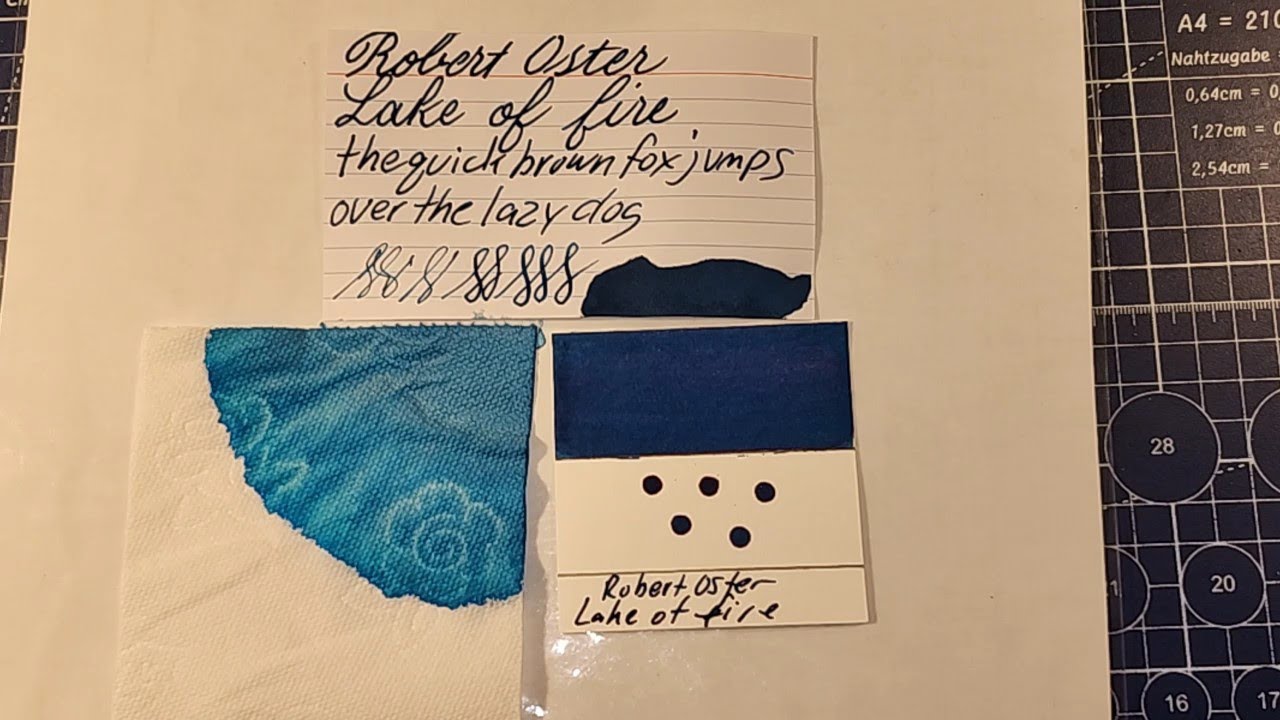 Robert Oster
Lake of fire
the quick brown fox jumps
over the lazy dog
Robert Oster
Lake of fire
A4 = 210
Nahtzugabe
0,64cm = 0,
1,27cm = 0
2,54cm =
28
20
16
17